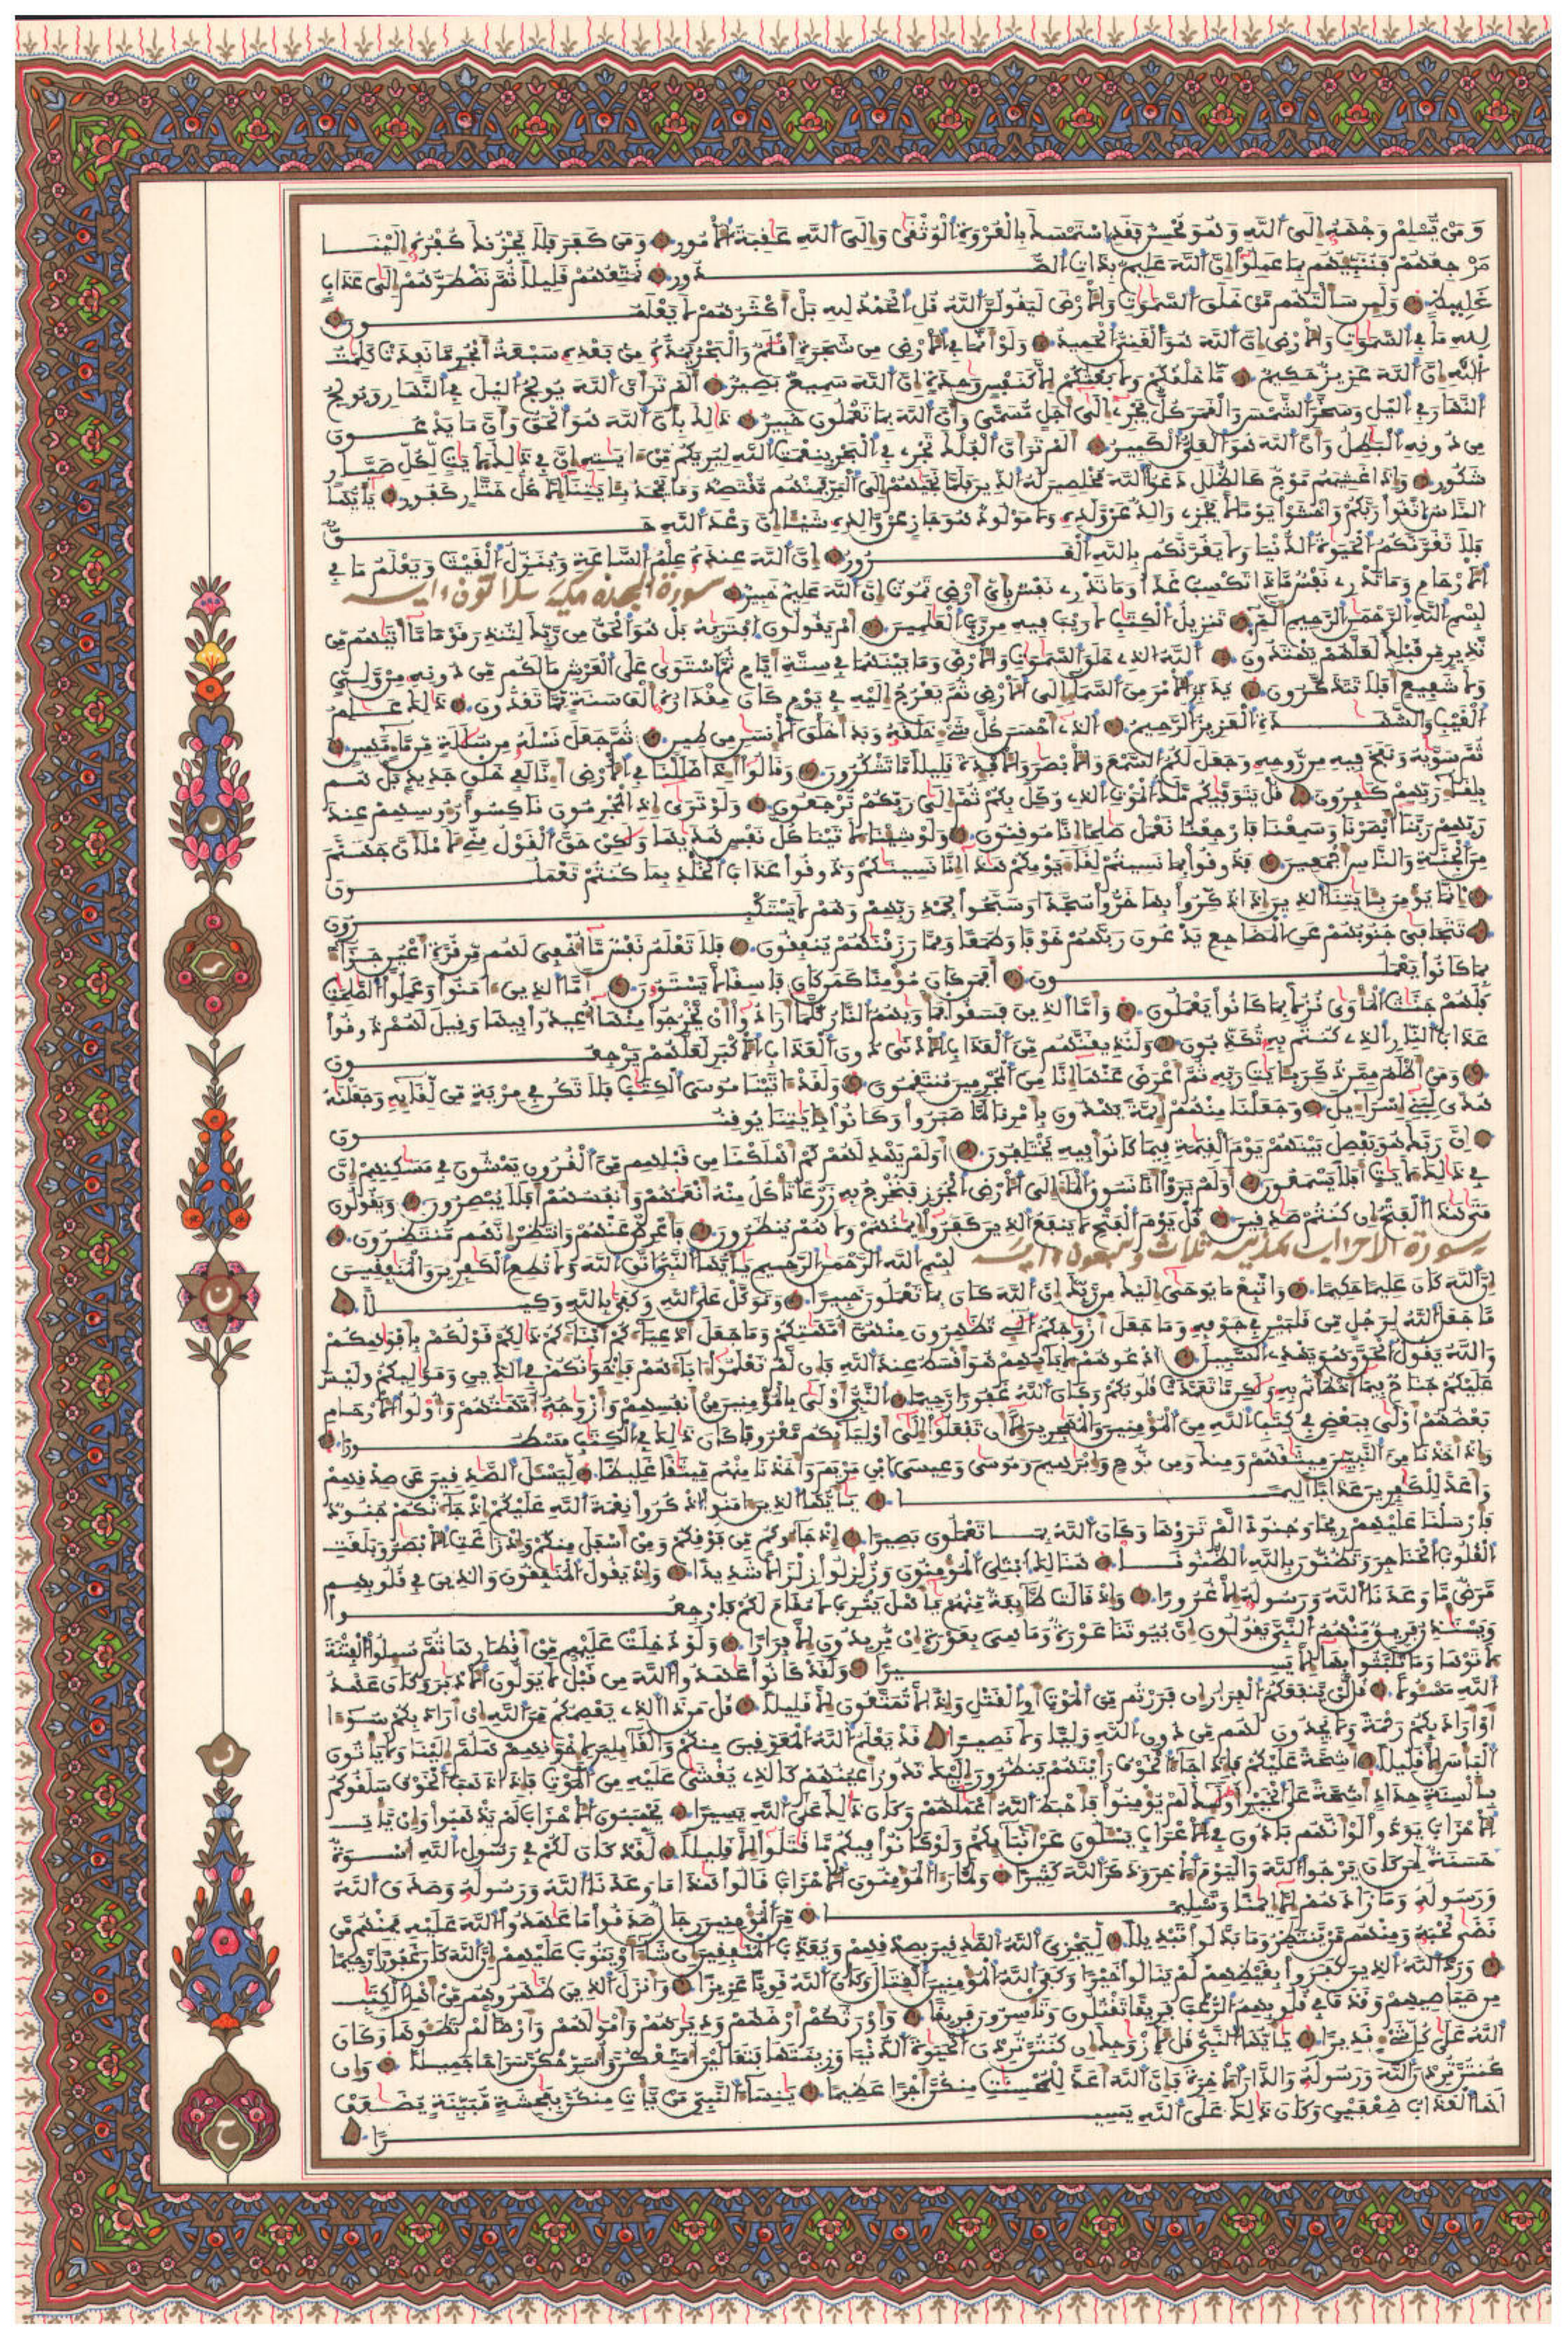 ومن يسلم وجهه إلى الله وهو محسن فقد استمسك بالعروة الوثقى وإلى الله عاقبة الأمور ومن كفر فلا يحزنك كفره إلينا
مرجعهم فننبئهم بما عملوا إن الله عليم بذات الصدور نمتعهم قليلا ثم نضطرهم إلى عذاب
غليظ ولئن سألتهم من خلق السموات والأرض ليقولن الله قل الحمد لله بل أكثرهم لا يعلمون
لله ما في السموات والأرض إن الله هو الغني الحميد ولو أنما في الأرض من شجرة أقلم والبحر يمده من بعده سبعة أبحر ما نفدت كلمت
الله إن الله عزيز حكيم ما خلقكم ولا بعثكم إلا كنفس وحدة إن الله سميع بصير ألم تر أن الله يولج اليل في النهار ويولج
النهار في اليل وسخر الشمس والقمر كل يجري إلى أجل مسمى وأن الله بما تعملون خبير ذلك بأن الله هو الحق وأن ما يدعون
من دونه البطل وأن الله هو العلي الكبير ألم تر أن الفلك تجري في البحر بنعمت الله ليريكم من ءايته إن في ذلك لأيت لكل صبار
شكور وإذا غشيهم موج كالظلل دعوا الله مخلصين له الدين فلما نجيهم إلى البر فمنهم مقتصد وما يجحد بئايتنا إلا كل ختار كفور يأيها
الناس اتقوا ربكم واخشوا يوما لا يجزي والد عن ولده ولا مولود هو جاز عن والده شيئا إن وعد الله حق
فلا تغرنكم الحيوة الدنيا ولا يغرنكم بالله الغرور إن الله عنده علم الساعة وينزل الغيث ويعلم ما في
الأرحام وما تدري نفس ماذا تكسب غدا وما تدري نفس بأي أرض تموت إن الله عليم خبير سورة السجدة مكية ثلاثون ءاية
بسم الله الرحمن الرحيم الم تنزيل الكتب لا ريب فيه من رب العلمين أم يقولون افتريه بل هو الحق من ربك لتنذر قوما ما أتيهم من
نذير من قبلك لعلهم يهتدون الله الذي خلق السموت والأرض وما بينهما في ستة أيام ثم استوى على العرش ما لكم من دونه من ولي
ولا شفيع أفلا تتذكرون يدبر الأمر من السماء إلى الأرض ثم يعرج إليه في يوم كان مقداره ألف سنة مما تعدون ذلك علم
الغيب والشهدة العزيز الرحيم الذي أحسن كل شيء خلقه وبدأ خلق الإنسن من طين ثم جعل نسله من سللة من ماء مهين
ثم سويه ونفخ فيه من روحه وجعل لكم السمع والأبصر والأفئدة قليلا ما تشكرون وقالوا أءذا ضللنا في الأرض إنا لفي خلق جديد بل هم
بلقاء ربهم كفرون قل يتوفيكم ملك الموت الذي وكل بكم ثم إلى ربكم ترجعون ولو ترى إذ المجرمون ناكسوا رءوسهم عند
ربهم ربنا أبصرنا وسمعنا فارجعنا نعمل صلحا إنا موقنون ولو شئنا لأتينا كل نفس هديها ولكن حق القول مني لأملأن جهنم
من الجنة والناس أجمعين فذوقوا بما نسيتم لقاء يومكم هذا إنا نسينكم وذوقوا عذاب الخلد بما كنتم تعملون
إنما يؤمن بئايتنا الذين إذا ذكروا بها خروا سجدا وسبحوا بحمد ربهم وهم لا يستكبرون
تتجافى جنوبهم عن المضاجع يدعون ربهم خوفا وطمعا ومما رزقنهم ينفقون فلا تعلم نفس ما أخفي لهم من قرة أعين جزاء
بما كانوا يعملون أفمن كان مؤمنا كمن كان فاسقا لا يستوون أما الذين ءامنوا وعملوا الصلحت
فلهم جنت المأوى نزلا بما كانوا يعملون وأما الذين فسقوا فمأويهم النار كلما أرادوا أن يخرجوا منها أعيدوا فيها وقيل لهم ذوقوا
عذاب النار الذي كنتم به تكذبون ولنذيقنهم من العذاب الأدنى دون العذاب الأكبر لعلهم يرجعون
ومن أظلم ممن ذكر بئايت ربه ثم أعرض عنها إنا من المجرمين منتقمون ولقد ءاتينا موسى الكتب فلا تكن في مرية من لقائه وجعلنه
هدى لبني إسراءيل وجعلنا منهم أئمة يهدون بأمرنا لما صبروا وكانوا بئايتنا يوقنون
إن ربك هو يفصل بينهم يوم القيمة فيما كانوا فيه يختلفون أولم يهد لهم كم أهلكنا من قبلهم من القرون يمشون في مسكنهم إن
في ذلك لأيت أفلا يسمعون أولم يروا أنا نسوق الماء إلى الأرض الجرز فنخرج به زرعا تأكل منه أنعمهم وأنفسهم أفلا يبصرون ويقولون
متى هذا الفتح إن كنتم صدقين قل يوم الفتح لا ينفع الذين كفروا إيمنهم ولا هم ينظرون فأعرض عنهم وانتظر إنهم منتظرون
سورة الأحزاب مدنية ثلاث وسبعون ءاية بسم الله الرحمن الرحيم يأيها النبي اتق الله ولا تطع الكفرين والمنفقين
إن الله كان عليما حكيما واتبع ما يوحى إليك من ربك إن الله كان بما تعملون خبيرا وتوكل على الله وكفى بالله وكيلا
ما جعل الله لرجل من قلبين في جوفه وما جعل أزوجكم الئي تظهرون منهن أمهتكم وما جعل أدعياءكم أبناءكم ذلكم قولكم بأفوهكم
والله يقول الحق وهو يهدي السبيل ادعوهم لأبائهم هو أقسط عند الله فإن لم تعلموا ءاباءهم فإخونكم في الدين وموليكم وليس
عليكم جناح فيما أخطأتم به ولكن ما تعمدت قلوبكم وكان الله غفورا رحيما النبي أولى بالمؤمنين من أنفسهم وأزوجه أمهتهم وأولوا الأرحام
بعضهم أولى ببعض في كتب الله من المؤمنين والمهجرين إلا أن تفعلوا إلى أوليائكم معروفا كان ذلك في الكتب مسطورا
وإذ أخذنا من النبيئين ميثقهم ومنك ومن نوح وإبرهيم وموسى وعيسى ابن مريم وأخذنا منهم ميثقا غليظا ليسئل الصدقين عن صدقهم
وأعد للكفرين عذابا أليما يأيها الذين ءامنوا اذكروا نعمة الله عليكم إذ جاءتكم جنود
فأرسلنا عليهم ريحا وجنودا لم تروها وكان الله بما تعملون بصيرا إذ جاءوكم من فوقكم ومن أسفل منكم وإذ زاغت الأبصر وبلغت
القلوب الحناجر وتظنون بالله الظنونا هنالك ابتلي المؤمنون وزلزلوا زلزالا شديدا وإذ يقول المنفقون والذين في قلوبهم
مرض ما وعدنا الله ورسوله إلا غرورا وإذ قالت طائفة منهم يأهل يثرب لا مقام لكم فارجعوا
ويستئذن فريق منهم النبي يقولون إن بيوتنا عورة وما هي بعورة إن يريدون إلا فرارا ولو دخلت عليهم من أقطارها ثم سئلوا الفتنة
لأتوها وما تلبثوا بها إلا يسيرا ولقد كانوا عهدوا الله من قبل لا يولون الأدبر وكان عهد
الله مسئولا قل لن ينفعكم الفرار إن فررتم من الموت أو القتل وإذا لا تمتعون إلا قليلا قل من ذا الذي يعصمكم من الله إن أراد بكم سوءا
أو أراد بكم رحمة ولا يجدون لهم من دون الله وليا ولا نصيرا قد يعلم الله المعوقين منكم والقائلين لإخونهم هلم إلينا ولا يأتون
البأس إلا قليلا أشحة عليكم فإذا جاء الخوف رأيتهم ينظرون إليك تدور أعينهم كالذي يغشى عليه من الموت فإذا ذهب الخوف سلقوكم
بألسنة حداد أشحة على الخير أولئك لم يؤمنوا فأحبط الله أعملهم وكان ذلك على الله يسيرا يحسبون الأحزاب لم يذهبوا وإن يأت
الأحزاب يودوا لو أنهم بادون في الأعراب يسئلون عن أنبائكم ولو كانوا فيكم ما قتلوا إلا قليلا لقد كان لكم في رسول الله إسوة
حسنة لمن كان يرجوا الله واليوم الأخر وذكر الله كثيرا ولما رءا المؤمنون الأحزاب قالوا هذا ما وعدنا الله ورسوله وصدق الله
ورسوله وما زادهم إلا إيمنا وتسليما من المؤمنين رجال صدقوا ما عهدوا الله عليه فمنهم من
قضى نحبه ومنهم من ينتظر وما بدلوا تبديلا ليجزي الله الصدقين بصدقهم ويعذب المنفقين إن شاء أو يتوب عليهم إن الله كان غفورا رحيما
ورد الله الذين كفروا بغيظهم لم ينالوا خيرا وكفى الله المؤمنين القتال وكان الله قويا عزيزا وأنزل الذين ظهروهم من أهل الكتب
من صياصيهم وقذف في قلوبهم الرعب فريقا تقتلون وتأسرون فريقا وأورثكم أرضهم وديرهم وأمولهم وأرضا لم تطئوها وكان
الله على كل شيء قديرا يأيها النبي قل لأزوجك إن كنتن تردن الحيوة الدنيا وزينتها فتعالين أمتعكن وأسرحكن سراحا جميلا وإن
كنتن تردن الله ورسوله والدار الأخرة فإن الله أعد للمحسنت منكن أجرا عظيما ينساء النبي من يأت منكن بفحشة مبينة يضعف
لها العذاب ضعفين وكان ذلك على الله يسيرا